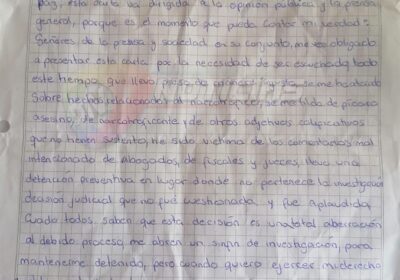 paz, esta carta va dirigida a la opinión pública y la prensa
general, porque es el momento que pueda contar mi verdad:
Señores, de la prensa y sociedad en su conjunto, me veo obligado
a presentar esta carta por la necesidad de ser escuchado, todo
este tiempo que llevo preso de manera injusta, se me ha tratado
Sobre hechos relacionados al narcotrafico, se me tilda de
asesino, de narcotraficante y de otros adjetivos calificativos
que no tienen sustento, He sido victima de los comentarios mal
intencionado de Abogados, de fiscales y jueces, llevo una
detención preventiva en lugar donde no pertenece la investigación
decisión judicial que no fue cuestionada y fue aplaudida,
Cuado todos, saben que esta decisión es una total aberración
al debido proceso, me abren un sinfin de investigación, para
mantenerme detenido, pero cuando quiero ejercer mi derecho